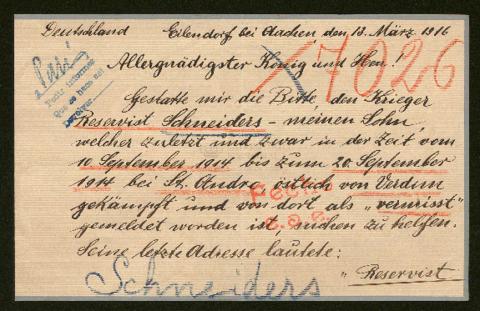 Deutschland Eilendorf bei Aachen den 13. März 1916
17026
Allergnädigster König und Herr!
Gestatte mir die Bitte, den Krieger
Reservist Schneiders – meinen Sohn,
welcher zuletzt und zwar in der Zeit vom
10 September 1914 bis zum 20. September
1914 bei St. Andre, östlich von Verdun
gekämpft und von dort als „vermisst"
gemeldet worden ist, suchen zu helfen.
Seine letzte Adresse lautete:
"Reservist
Schneiders